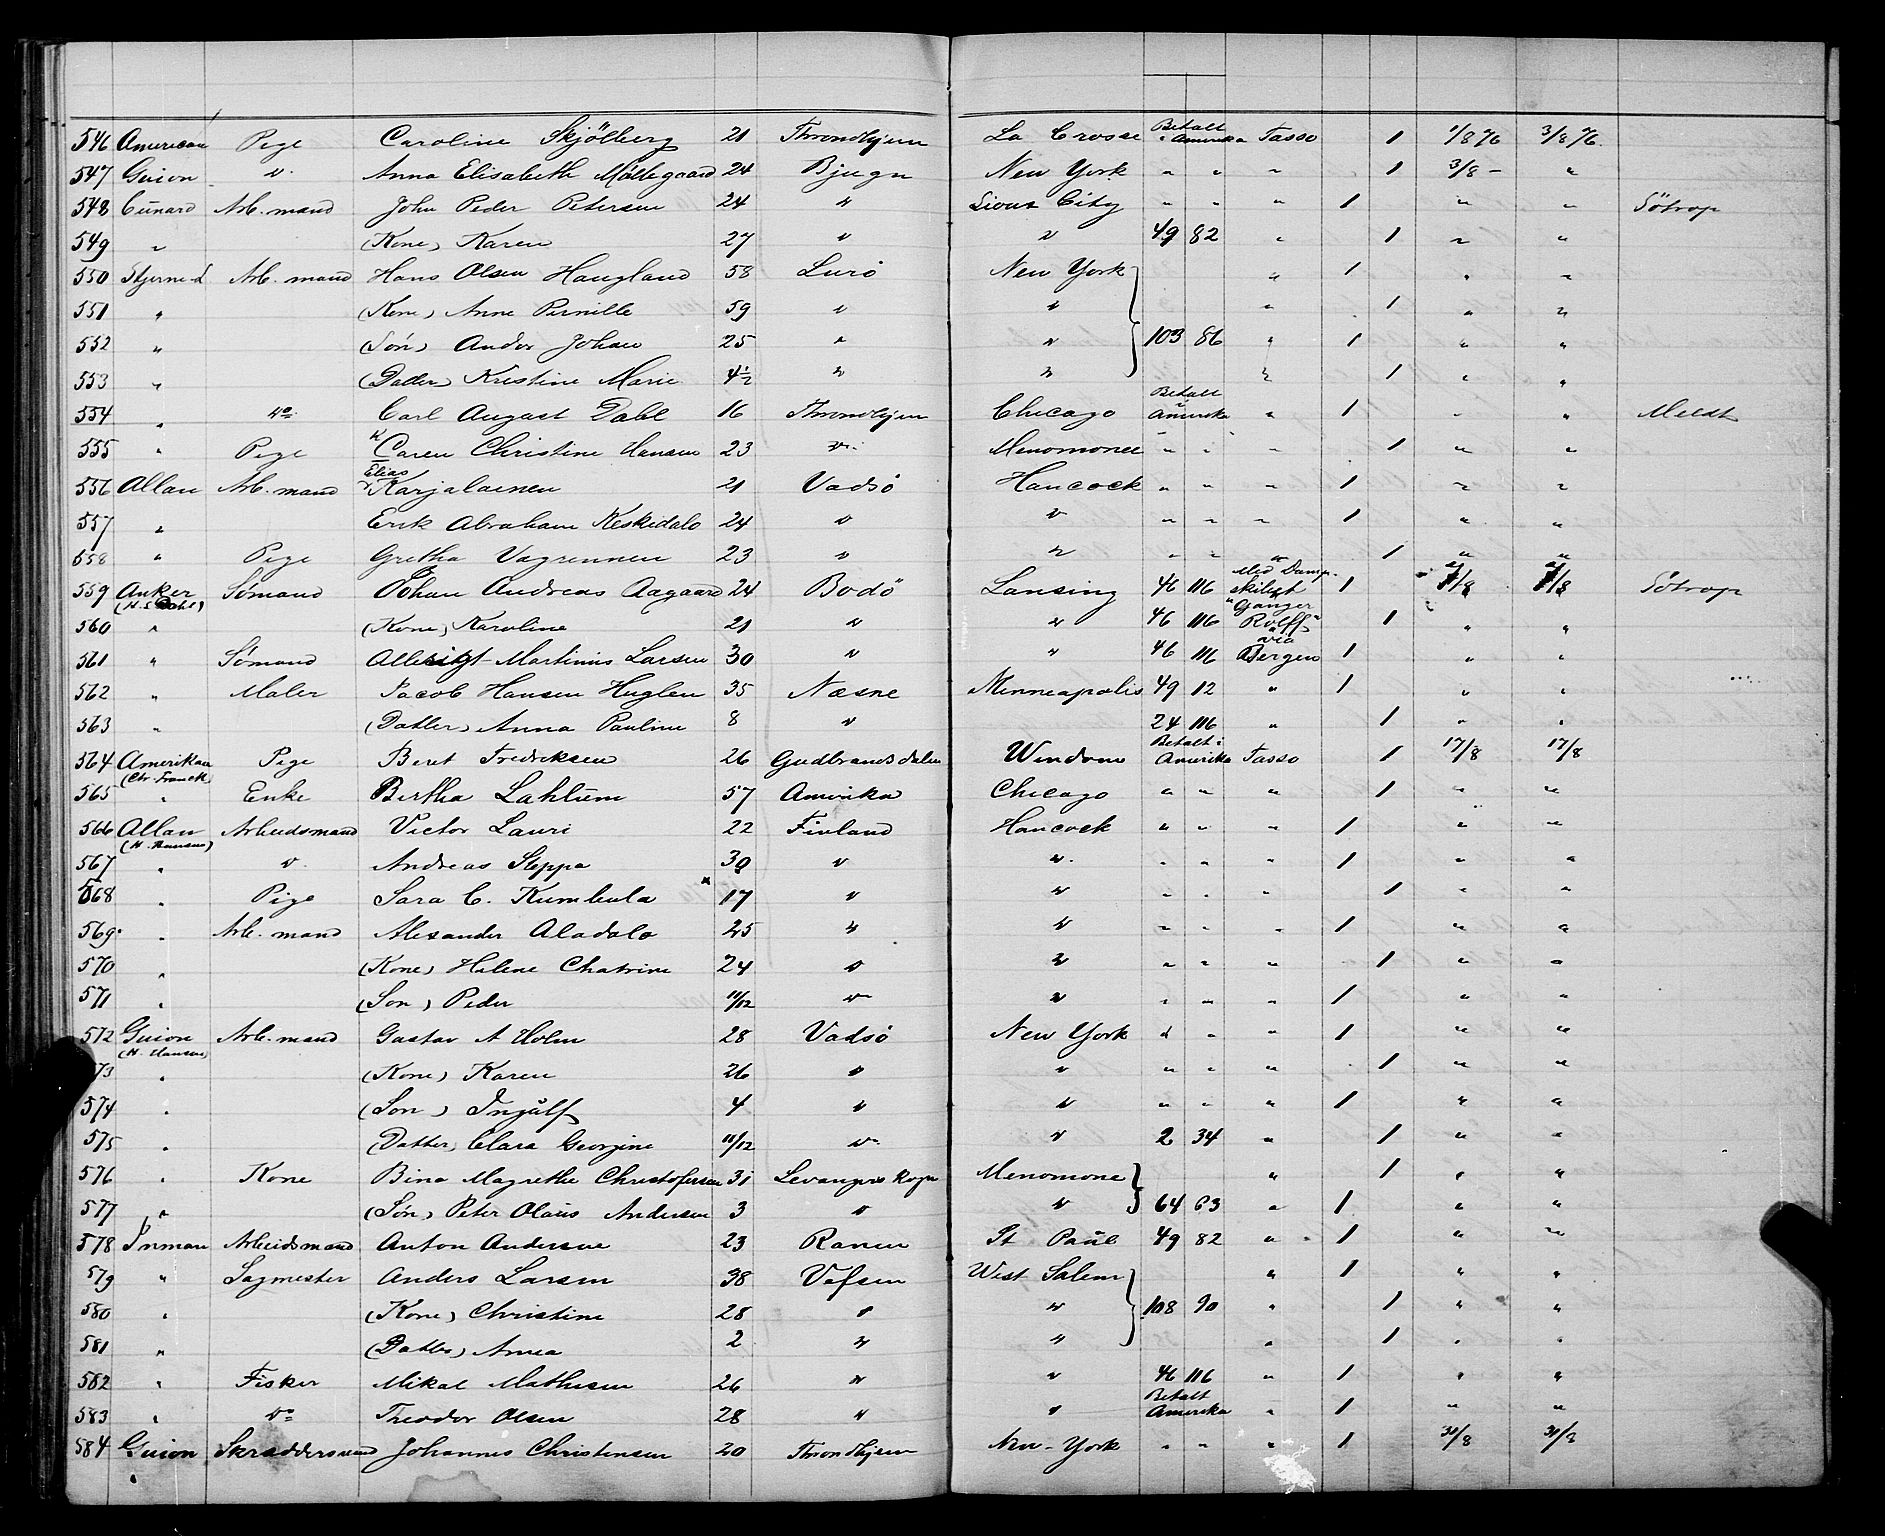 546 American Pige Caroline Skjölberg 21 Throndhjem La Crosse Betalt i Amerika Tasso 1 1/8 76 3/8 76.
547 Guion " Anna Elisabeth Möllegaard 24 Bjugn New York " " " 1 3/8 - "
548 Cunard Arb. mand John Peder Petersen 24 " Sioux City " " " 1 " " Götrop
549 " (Kone) Karen 27 " " 49 82 " 1 " "
550 Stjerne-L Arb. mand Hans Olsen Haugland 58 Lurö New York " 1 " "
551 " (Kone) Anne Pernille 59 " " " 1 " "
552 " (Sön) Andor Johan 25 " " 103 86 " 1 " "
553 " (Datter) Kristine Marie 4½ " " " 1 " "
554 " do Carl August Dahl 16 Throndhjem Chicago Betalt i Amerika " 1 " "
555 " Pige Caren Christine Hansen 23 " Menomonee " " " 1 " "
556 Allan Arb. mand Elias Karjalainen 21 Vadsö Hancock " " " 1 " "
557 " Erik Abraham Keskidalo 24 " " " " " 1 " "
558 " Pige Gretha Vagrennen 23 " " " " " 1 " "
559 Anker (H. S. Dahl) Sömand Johan Andreas Aagaard 24 Bodö Lansing 46 116 Med Damp- skibet 1 8/8 8/8 Götrop
560 " (Kone) Karoline 21 " " 46 116 "Ganger Rolff" 1 " "
561 " Sömand Martinus Larsen 30 " " 46 116 via Bergen 1 " "
562 " Maler Jacob Hansen Huglen 35 Næsne Minneapolis 49 12 " 1 " "
563 " (Datter) Anna Pauline 8 " 24 116 " 1 " "
564 Amerikan (Chr. Franck) Pige Beret Fredriksen 26 Gudbrandsdalen Windom Betalt i Amerika Tasso 1 17/8 17/8
565 " Enke Bertha Lahlum 57 Amerika Chicago " " " 1 " "
566 Allan (H. Hansen) Arbeidsmand Victor Lauri 22 Finland Hancock " " " 1 " "
567 " " Andreas Steppa 30 " " " " " 1 " "
568 " Pige Sara C. Kumbula 17 " " " " " 1 " "
569 " Arb. mand Alexander Aladalo 25 " " " " " 1 " "
570 " (Kone) Helene Chatrine 24 " " " " " 1 " "
571 " (Sön) Peder 11/12 " " " " " 1 " "
572 Guion (H. Hansen) Arb. mand Gustav A Holm 28 Vadsö New York " " " 1 " "
573 " (Kone) Karen 26 " " " " " 1 " "
574 " (Sön) Ingulf 4 " " " " " 1 " "
575 " (Datter) Clara Georgine 11/12 " " 2 34 " 1 " "
576 " Kone Bina Magrethe Christofersen 31 Levanger Menomone " 1 " "
577 " (Sön) Peter Olaus Andersen 3 " " 64 63 " 1 " "
578 Inman Arbeidsmand Anton Andersen 23 Ranen St Paul 49 82 " 1 " "
579 " Sagmester Anders Larsen 38 Vefsen West Salem " 1 " "
580 " (Kone) Christine 28 " " 108 90 " 1 " "
581 " (Datter) Anna 2 " " " 1 " "
582 " Fisker Mikal Mathisen 26 " " 46 116 " 1 " "
583 " do Theodor Olsen 28 " " Betalt Amerika " 1 " "
584 Guion Skræddersvend Johannes Christensen 20 Throndhjem New-York " " " 1 30/8 30/8